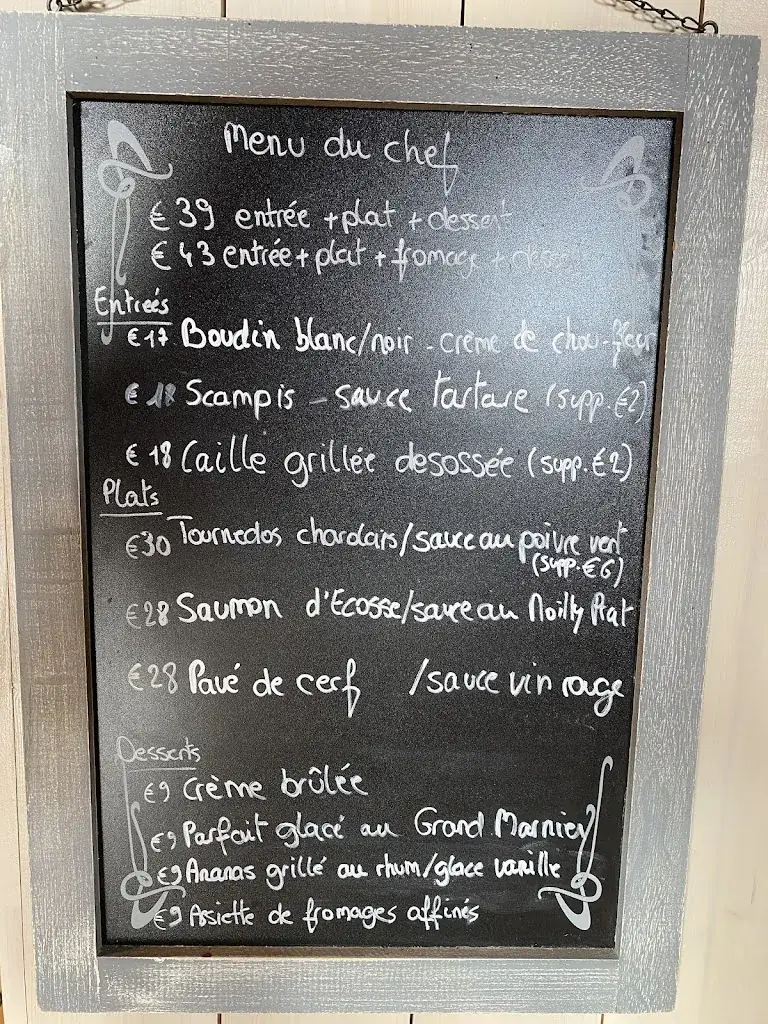 Menu du chef
€39 entrée + plat + dessert
€43 entrée + plat + fromage + dessert
Entreés
€17 Boudin blanc/noir - crème de chou-fleur
€18 Scampis - sauce tartare (supp. €2)
€18 Caille grillée desossée (supp. €2)
Plats
€30 Tournedos charolais/sauce au poivre vert
(supp. €6)
€28 Saumon d'Ecosse/sauce au Noilly Prat
€28 Pavé de cerf /sauce vin rouge
Desserts
€9 Crème brûlée
€9 Parfait glacé au Grand Marnier
€9 Ananas grillé au rhum/glace vanille
€9 Assiette de fromages affinés